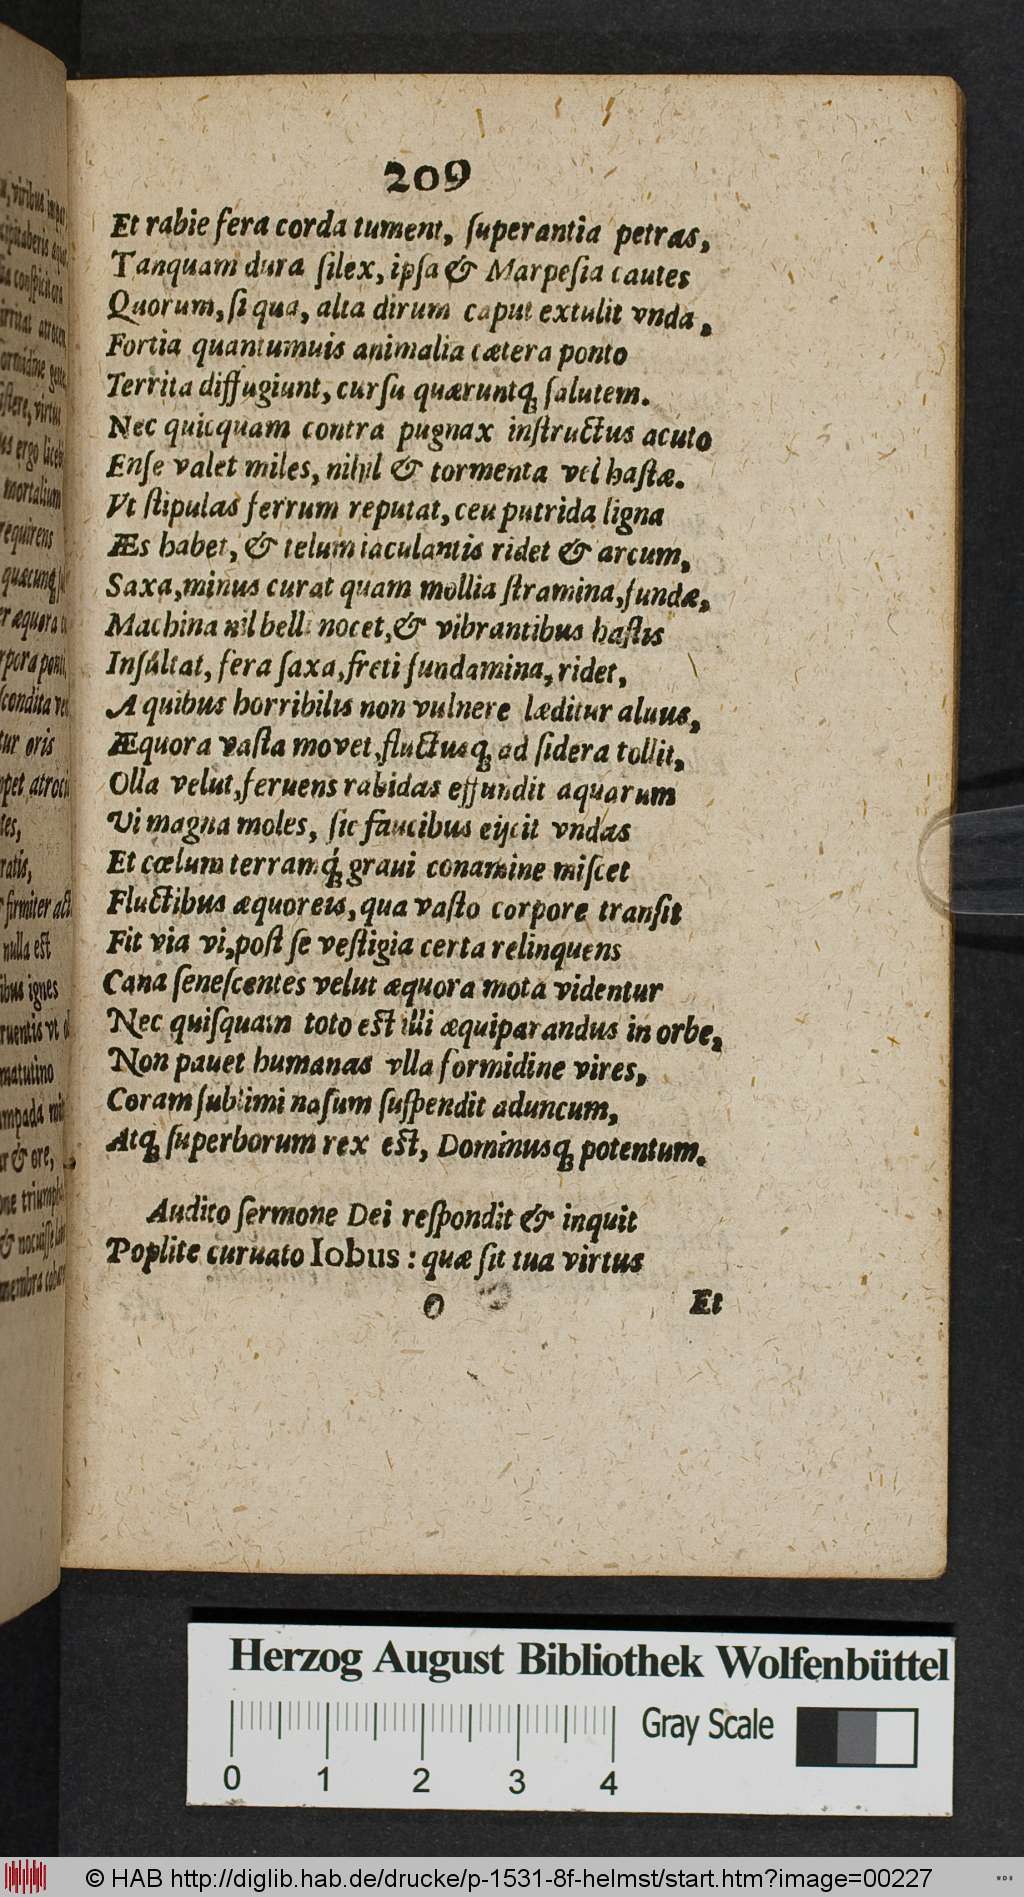 209
Et rabie fera corda tument, ſuperantia petras,
Tanquam dura ſilex, ipſa & Marpeſia cautes
Quorum, ſi qua, alta dirum caput extulit vnda,
Fortia quantumuis animalia cætera ponto
Territa diffugiunt, curſu quæruntq; ſalutem.
Nec quicquam contra pugnax inſtructus acuto
Enſe valet miles, nihil & tormenta vel haſtæ.
Vt ſtipulas ferrum reputat, ceu putrida ligna
Æs habet, & telum iaculantis ridet & arcum,
Saxa, minus curat quam mollia ſtramina, fundæ,
Machina nil belli nocet, & vibrantibus haſtis
Inſultat, fera ſaxa, freti fundamina, ridet,
A quibus horribilis non vulnere læditur aluus,
Æquora vaſta movet, fluctusq; ad ſidera tollit,
Olla velut, feruens rabidas effundit aquarum
Vi magna moles, ſic faucibus eijcit vndas
Et cœlum terramq́; graui conamine miſcet
Fluctibus æquoreis, qua vaſto corpore tranſit
Fit via vi, poſt ſe veſtigia certa relinquens
Cana ſeneſcentes velut æquora mota videntur
Nec quiſquam toto eſt illi æquiparandus in orbe,
Non pauet humanas vlla formidine vires,
Coram ſublimi naſum ſuſpendit aduncum,
Atq; ſuperborum rex eſt, Dominusq; potentum.
Audito ſermone Dei reſpondit & inquit
Poplite curuato Iobus: quæ ſit tua virtus
O Et
Herzog August Bibliothek Wolfenbüttel
Gray Scale
0 1 2 3 4
© HAB http://diglib.hab.de/drucke/p-1531-8f-helmst/start.htm?image=00227